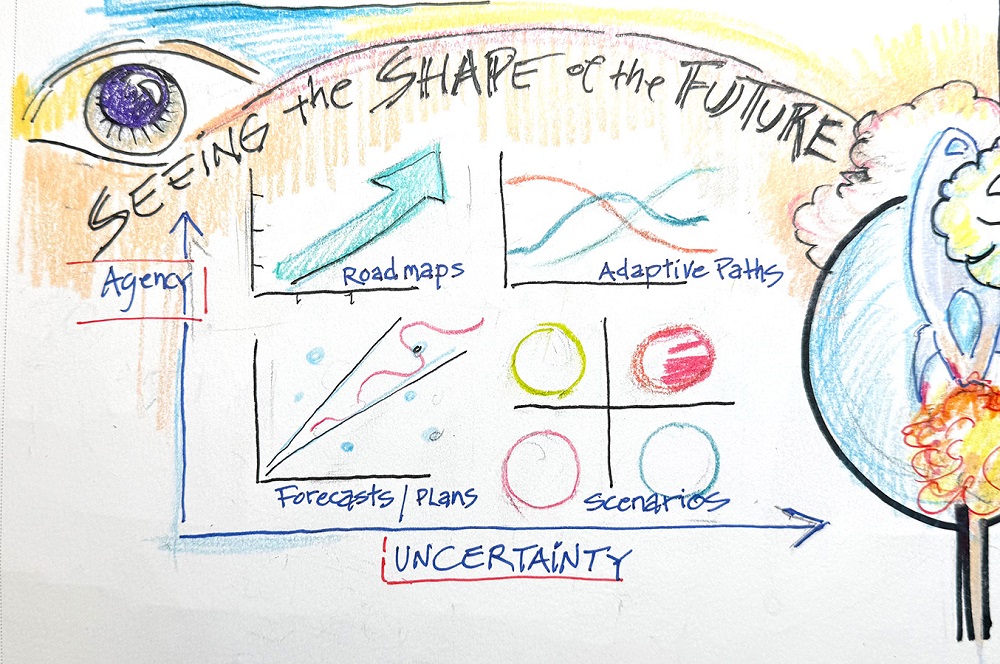 SEEING the SHAPE of the FUTURE
Agency
Roadmaps
Adaptive Paths
Forecasts / Plans
Scenarios
UNCERTAINTY